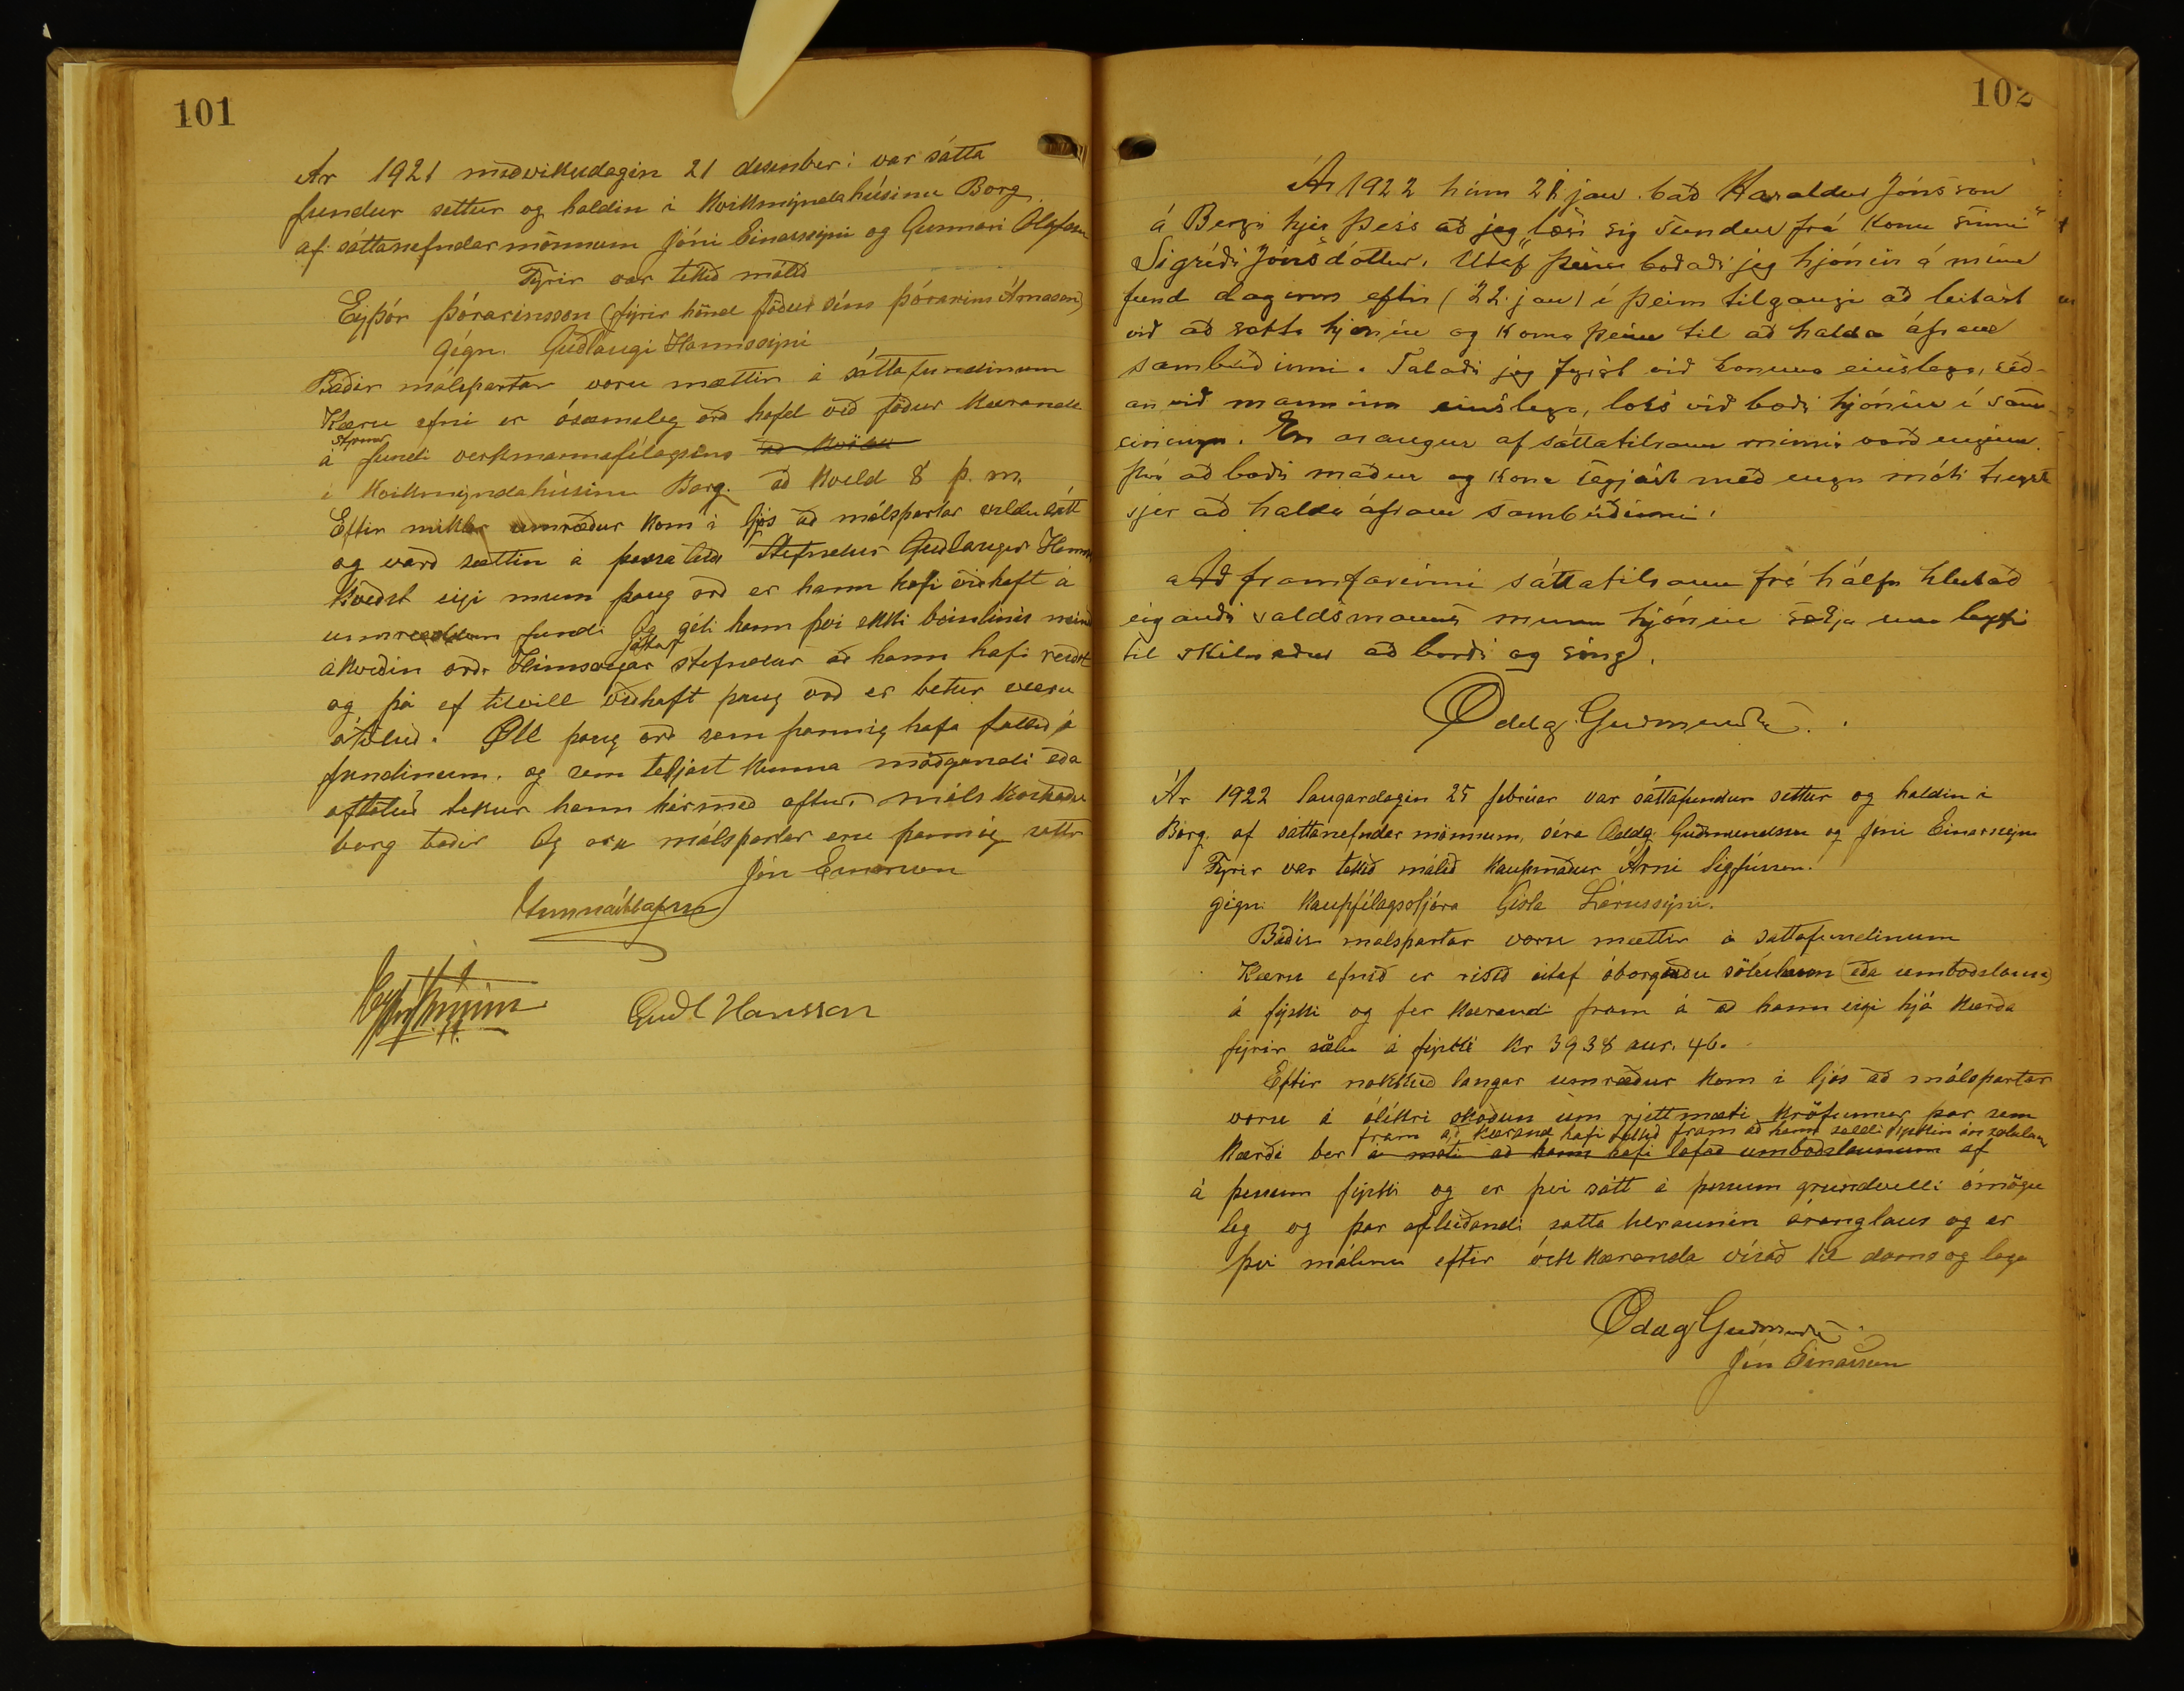 101
Ár 1921 miðvikudagin 21 desember: var sátta
fundur settur og haldin i Kvikmyndahúsinu Borg
af sáttanefndarmönnum Jóni Einarssyni og Gunnari Olafssyni
Fyrir var tekið málið
Eyþór Þórarinsson (fyrir hönd föður sins Þórarins Árnason)
gégn. Guðlaugi Hanssyni
Báðir málspartar voru mættir á sáttafundinum
Kæru efni er ósæmileg orð höfd við föður Kæranda
á fundi verkmannafélagsins að Kvöldi
i Kvikmyndahúsinu Borg. að Kveld 8 þ. m.
Eftir miklar umræður kom i ljós að málspartar vildu sátt
og varð sættin á þessa leið Stefndur Guðlaugur Hansson
Kveðst eigi muna þaug orð er hann hafi viðhaft á
umræddum fundi Og géti hann þvi ekki beinlinis neina
ákveðin orð. Hinsvegar játast stefndur að hann hafi reiðst
og þá ef tilvill viðhaft þaug orð er betur væru
ótöluð. Öll þaug orð sem þannig hafa fallið á
fundinum. og sem teljast kunna móðgandi eða
oftöluð tekur hann hérmeð aftur. Máls Kostnaður
borg báðir Og eru málspartar eru þannig sáttir
Jón Einarsson
Gunnar Ólafsson
Guðl Hansson
102
Ár 1922 hinn 21 jan. bað Haraldur Jónsson
á Bergi hjer þess að jeg "læsi sig sundur frá konu sinni"
Sigríði Jónsdóttur. Utaf þessu boðaði jeg hjónin á minn
fund daginn eftir (22. jan) í þeim tilgangi að leitast
við að sætta hjónin og koma þeim til að halda áfram
sambúðinni. Talaði jeg fyrst við konuna einslega, síð-
an við manninn einslega, loks við bæði hjónin í sam-
einingu. En árangur af sáttatilraun minni varð enginn.
því að bæði maður og kona segjast með engu móti treysta
sjer að halda áfram sambúðinni.
Að framfarinni sáttatilraun frá hálfu hlutað
eigandi valdsmanns munu hjónin sækja um leyfi
til skilnaður að borði og sæng.
Oddg. Guðmundss.
Ár 1922 laugardagin 25 febrúar var sáttafundur settur og haldin i
Borg. af sáttanefndar mönnum, séra Oddg. Guðmundssen og Jóni Einarssyni
Fyrir var tekið málið Kaupmaður Árni Sigfússon.
gégn. Kaupfélagsstjóra Gisla Lárussyni.
Báðir málspartar voru mættir á sáttafundinum
Kæru efnið er risið útaf óborguðu sölulaun (eða umboðslaun)
á fiski og fer Kærandi fram á að hann eigi hjá Kærða
fyrir sölu á fiski kr 3938 aur. 46.
Eftir nokkuð langar umræður kom i ljós að málspartar
voru á ólikri skoðun um rjettmæti kröfunnar þar sem
fram að Kærand hafi tekið fram að hann seldi fiskin án sölulauna
Kærði ber á móti að hann hafi lofað umboðslaunum af
á þessum fiski og er þvi sátt á þessum grundvelli ómögu
leg og þar afleiðandi sátta tilraunin áranglaus og er
þvi málinu eftir ósk Kæranda visað til doms og laga
Oddg Guðmunds.
Jón Einarsson